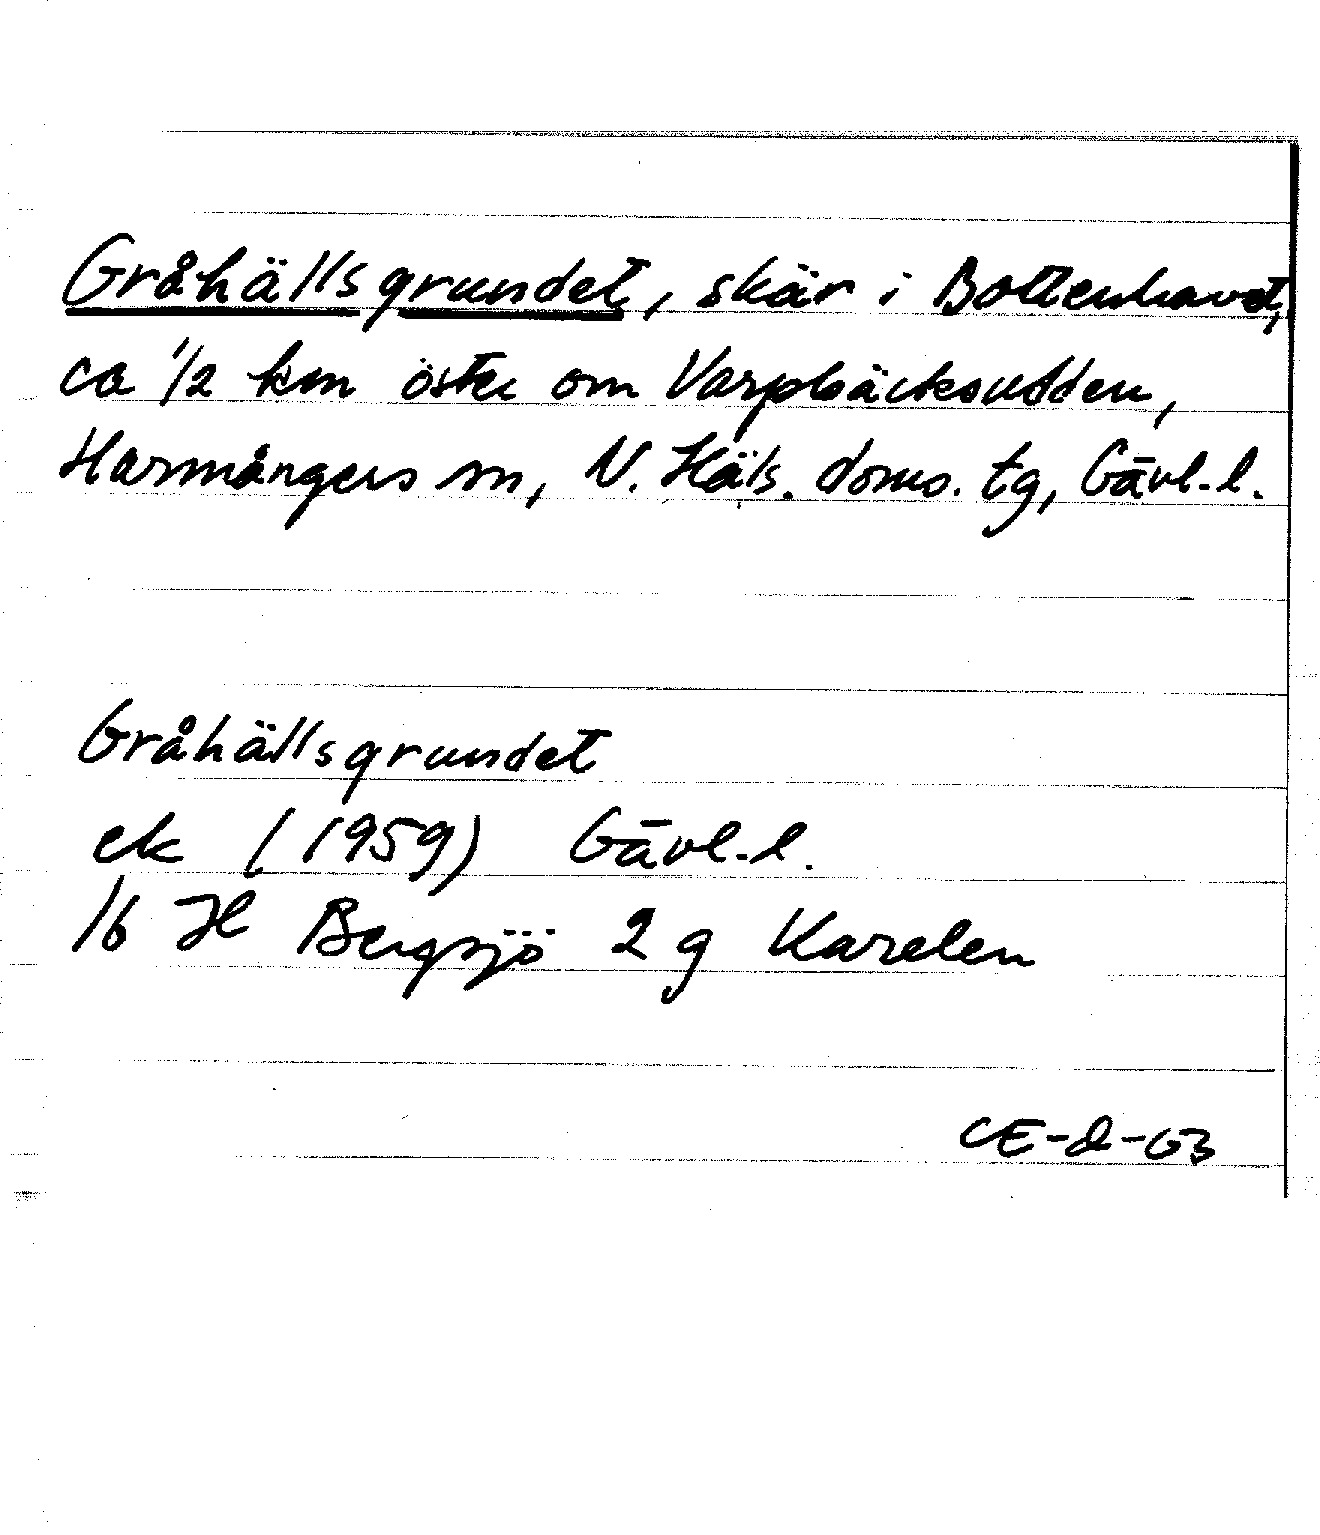 Gråhällsgrundet, skär i Bottenhavet,
ca 1/2 km öster om Varpbäcksudden,
Harmångers sn, N. Häls. doms. tg, Gävl. l.
Gråhällsgrundet
ek (1959) Gävl. l.
16 H Bergsjö 2 g Karelen
CE-2-63